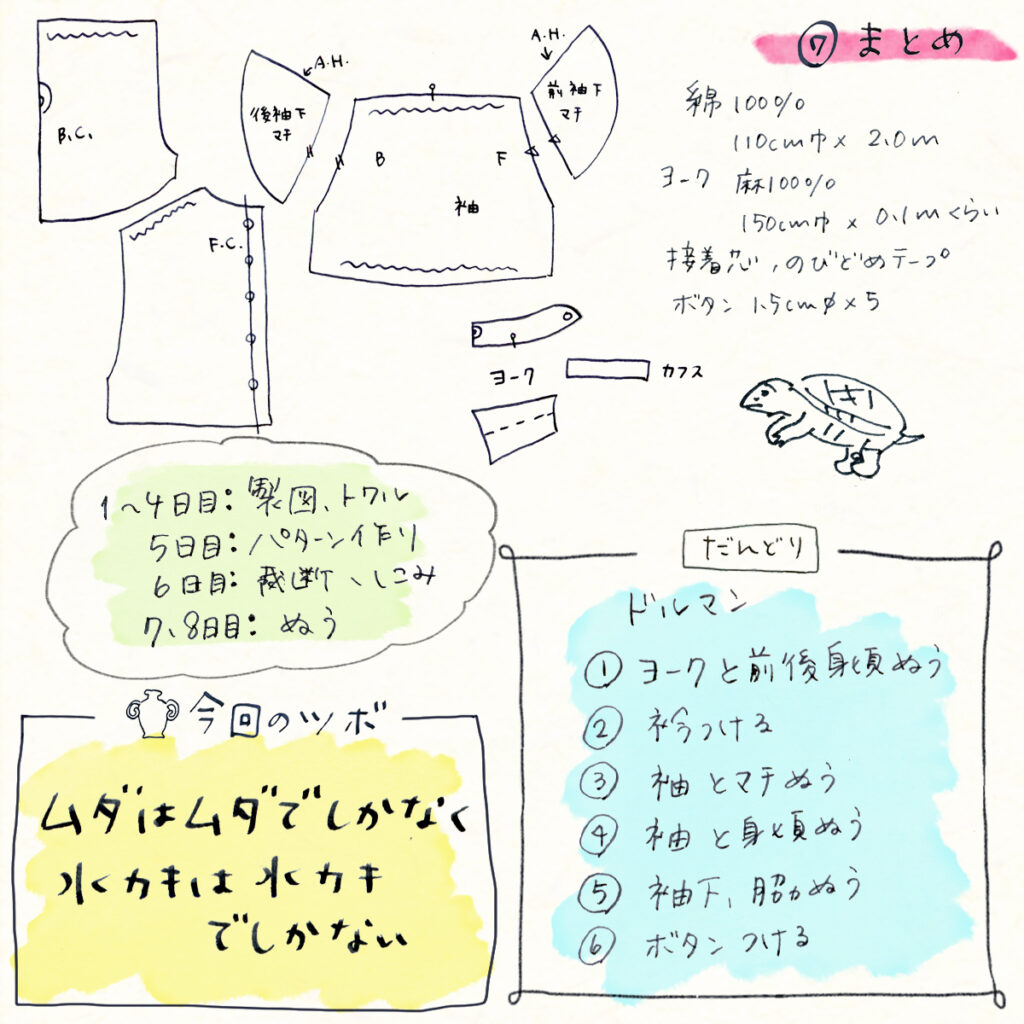 ⑦ まとめ
綿 100%
110cm巾 × 2.0m
ヨーク 麻100%
150cm巾 × 0.1mくらい
接着芯、のびどめテープ
ボタン 1.5cmφ×5
B.C.
F.C.
A.H.
後袖下
マチ
B
F
袖
A.H.
前袖下
マチ
ヨーク
カフス
トキ
1〜4日目：製図、トワル
5日目：パターン作り
6日目：裁断、しこみ
7、8日目：ぬう
今回のツボ
ムダはムダでしかなく
水カキは水カキ
でしかない
だんどり
ドルマン
① ヨークと前後身頃ぬう
② 衿つける
③ 袖とマチぬう
④ 袖と身頃ぬう
⑤ 袖下、脇ぬう
⑥ ボタンつける